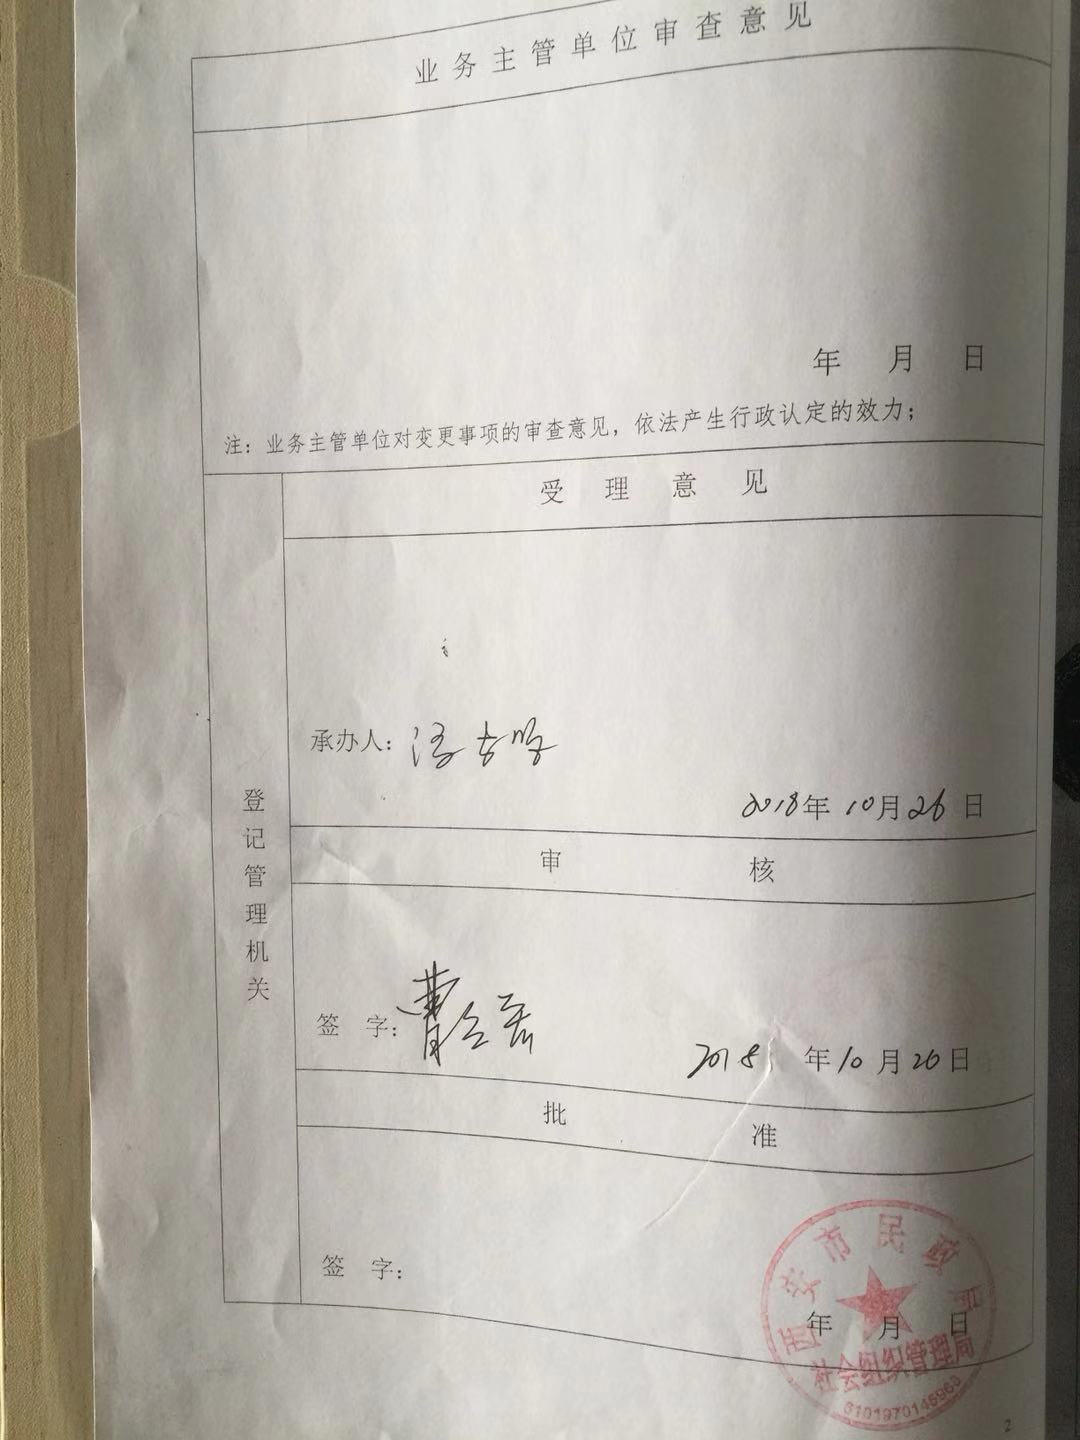 业务主管单位审查意见
年 月 日
注：业务主管单位对变更事项的审查意见，依法产生行政认定的效力；
登记管理机关
受理意见
承办人：
2018年10月26日
审核
签 字：曹
2018年10月26日
批准
签 字：
年 月 日
西安市民政局
社会组织管理局
2